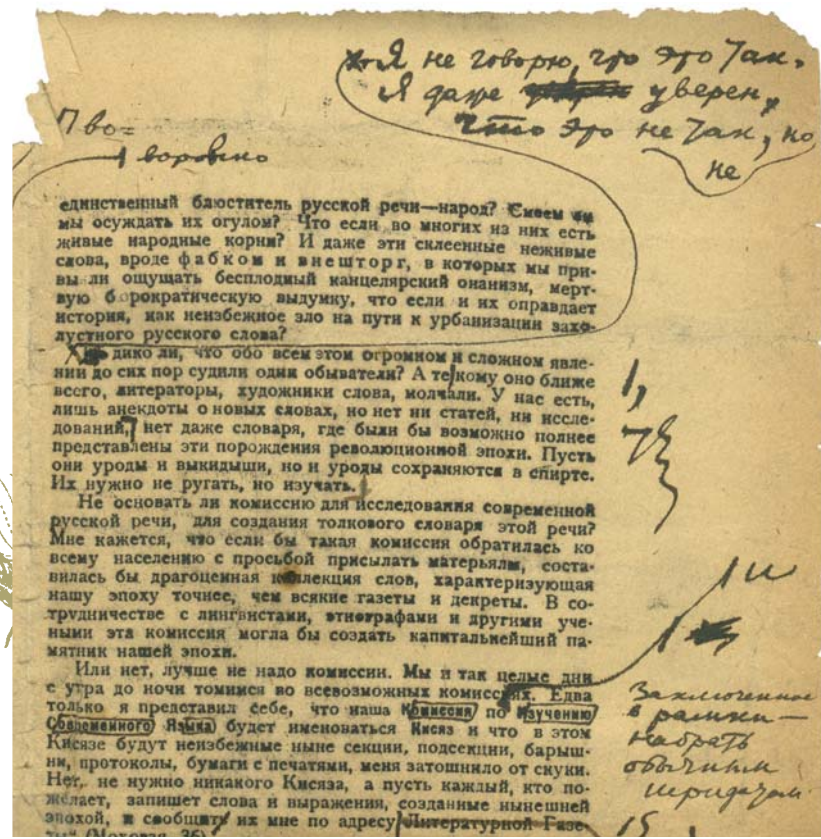 Я не говорю, что это так.
Я даже уверен,
что это не так, но
не
единственный блюститель русской речи—народ? Смеем
мы осуждать их огулом? Что если во многих из них есть
живые народные корни? И даже эти склеенные неживые
слова, вроде фабком и внешторг, в которых мы при-
вы ли ощущать бесплодный канцелярский онанизм, мерт-
вую б рократическую выдумку, что если и их оправдает
история, как неизбежное зло на пути к урбанизации захо-
лустного русского слова?
дико ли, что обо всем этом огромном и сложном явле-
нии до сих пор судили одни обыватели? А те кому оно ближе
всего, литераторы, художники слова, молчали. У нас есть,
лишь анекдоты о новых словах, но нет ни статей, ни иссле-
дований, нет даже словаря, где были бы возможно полнее
представлены эти порождения революционной эпохи. Пусть
они уроды и выкидыши, но и уроды сохраняются в спирте.
Их нужно не ругать, но изучать.
Не основать ли комиссию для исследования современной
русской речи, для создания толкового словаря этой речи?
Мне кажется, что если бы такая комиссия обратилась ко
всему населению с просьбой присылать матерьялы, соста-
вилась бы драгоценная коллекция слов, характеризующая
нашу эпоху точнее, чем всякие газеты и декреты. В со-
трудничестве с лингвистами, этнографами и другими уче-
ными эта комиссия могла бы создать капитальнейший па-
мятник нашей эпохи.
Или нет, лучше не надо комиссии. Мы и так целые дни
с утра до ночи томимся во всевозможных комиссиях. Едва
только я представил себе, что наша Комиссия по Изучению
Современного Языка будет именоваться Кисяз и что в этом
Кисязе будут неизбежные ныне секции, подсекции, барыш-
ни, протоколы, бумаги с печатями, меня затошнило от скуки.
Нет, не нужно никакого Кисяза, а пусть каждый, кто по-
желает, запишет слова и выражения, созданные нынешней
эпохой, и сообщит их мне по адресу Литературной Газе-
ты" (Моховая, 36)
Заключенное
в рамки—
набрать
обычным